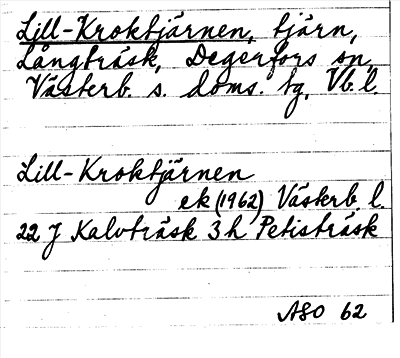 Lill-Kroktjärnen, tjärn,
Långträsk, Degerfors sn,
Västerb. s. doms. tg, Vb. l.
Lill-Kroktjärnen
ek (1962) Västerb. l.
22 J Kalvträsk 3 h Petisträsk
ASO 62